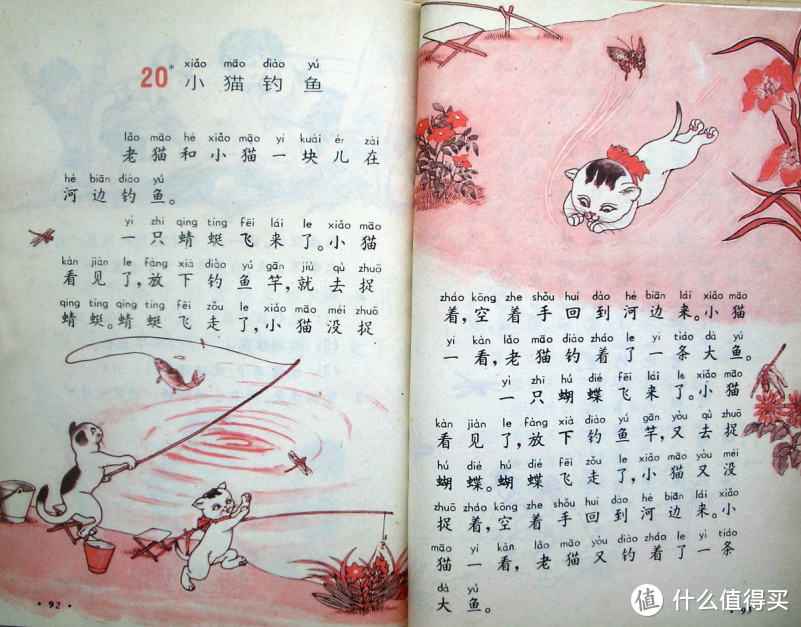 20* xiǎo māo diào yú
小猫钓鱼
lǎo māo hé xiǎo māo yí kuài ér zài
老猫和小猫一块儿在
hé biān diào yú
河边钓鱼。
yì zhī qīng tíng fēi lái le xiǎo māo
一只蜻蜓飞来了。小猫
kàn jiàn le fàng xià diào yú gān jiù qù zhuō
看见了,放下钓鱼竿,就去捉
qīng tíng qīng tíng fēi zǒu le xiǎo māo méi zhuō
蜻蜓。蜻蜓飞走了,小猫没捉
·92·
zháo kōng zhe shǒu huí dào hé biān lái xiǎo māo
着,空着手回到河边来。小猫
yí kàn lǎo māo diào zháo le yì tiáo dà yú
一看,老猫钓着了一条大鱼。
yì zhī hú dié fēi lái le xiǎo māo
一只蝴蝶飞来了。小猫
kàn jiàn le fàng xià diào yú gān yòu qù zhuō
看见了,放下钓鱼竿,又去捉
hú dié hú dié fēi zǒu le xiǎo māo yòu méi
蝴蝶。蝴蝶飞走了,小猫又没
zhuō zháo kōng zhe shǒu huí dào hé biān lái xiǎo
捉着,空着手回到河边来。小
māo yí kàn lǎo māo yòu diào zháo le yì tiáo
猫一看,老猫又钓着了一条
dà yú
大鱼。
·93·
值 什么值得买